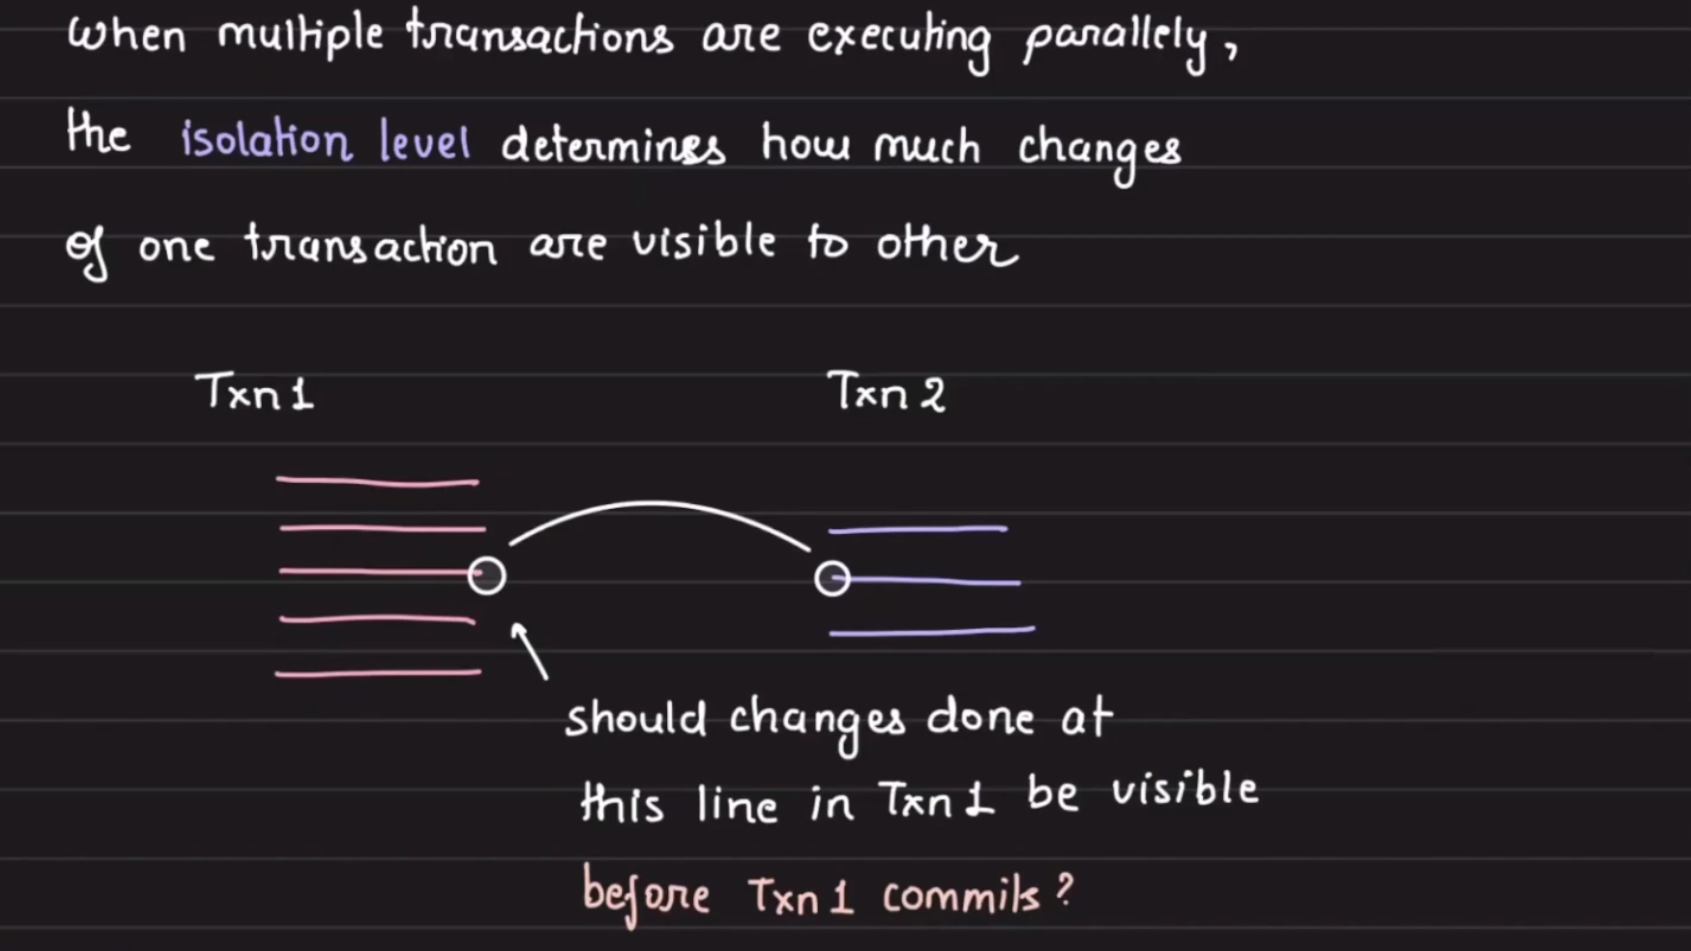 when multiple transactions are executing parallely,
the isolation level determines how much changes
of one transaction are visible to other
Txn 1
Txn 2
should changes done at
this line in Txn 1 be visible
before Txn 1 commits?